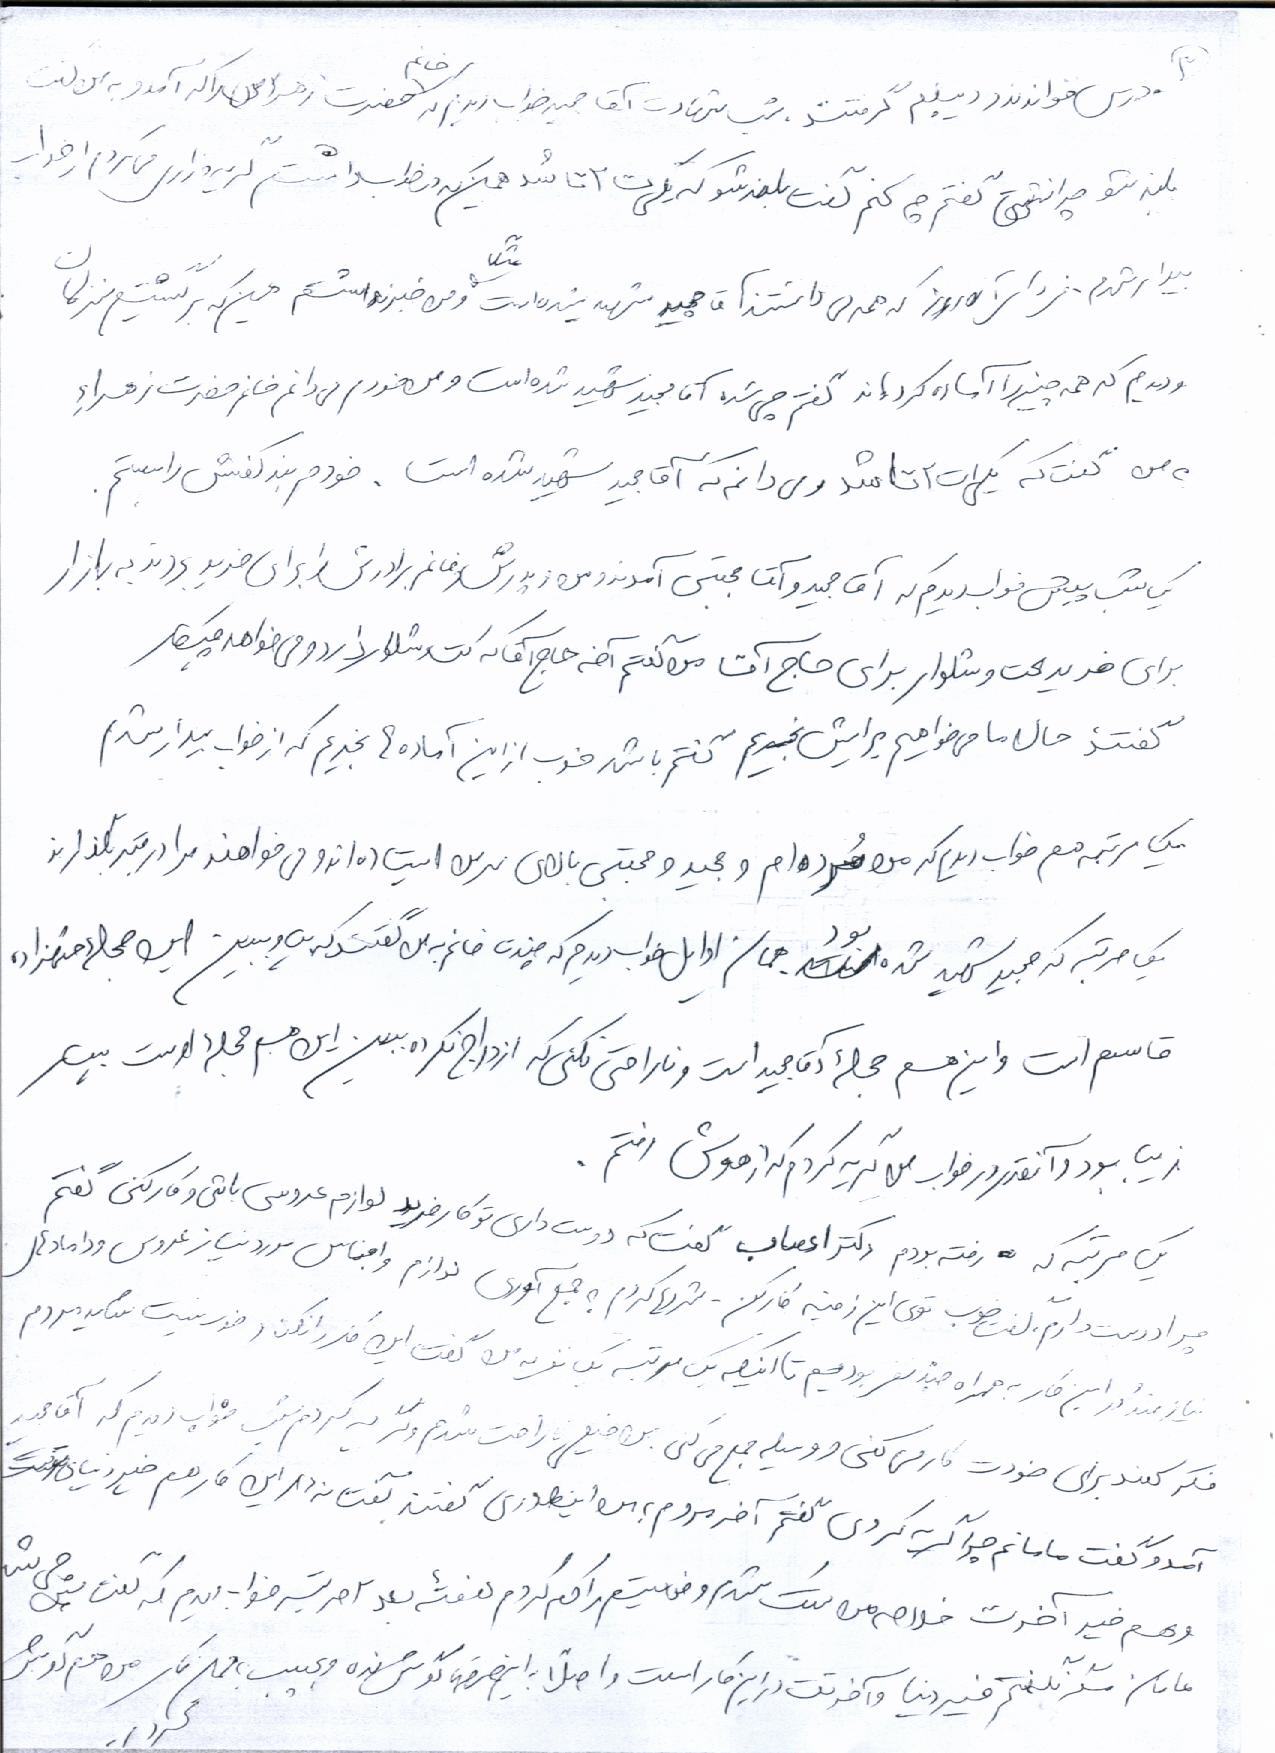 ۳
درس خواندند و دیپلم گرفتند. شب شهادت آقا مجید خواب دیدم که خانم حضرت زهرا آمد و به من گفت
بلند شو چرا نشستی گفتم چه کنم گفت بلند شو که یکی‌ات ۲ تا شد همین که در خواب داشتم گریه و زاری می‌کردم از خواب
بیدار شدم. فردای آن روز که همه می‌دانستند آقا مجید شهید شده است و من خبر نداشتم همین که برگشتیم منزلمان
و دیدم که همه چیز را آماده کرده‌اند گفتم چی شده آقا مجید شهید شده است و من خودم می‌دانم خانم حضرت زهراء
به من گفت که یکی‌ات ۲ تا شد و می‌دانم که آقا مجید شهید شده است. خودم بند کفنش را بستم.
یک شب پیش خواب دیدم که آقا مجید و آقا مجتبی آمدند و من و پدرش و خانم برادرش را برای خرید بردند به بازار
برای خرید کت و شلوار برای حاج آقا من گفتم آخه حاج آقا که کت و شلوار دارد و می‌خواهد چیکار
گفتند حالا ما می‌خواهیم برایش بخریم گفتم باشد خوب از این آماده‌ها بخریم که از خواب بیدار شدم
یک مرتبه هم خواب دیدم که من مُرده‌ام و مجید و مجتبی بالای سر من ایستاده‌اند و می‌خواهند مرا در قبر بگذارند
یک مرتبه که مجید شهید شده بود همان اوایل خواب دیدم که چند تا خانم به من گفتند که بیا و ببین این حجلهٔ شهزاده
قاسم است و این هم حجلهٔ آقا مجید است و ناراحتی نکنی که ازدواج نکرده ببین این هم حجلهٔ اوست بسیار
زیبا بود و آنقدر در خواب من گریه کردم که از هوش رفتم.
یک مرتبه که رفته بودم دکتر اعصاب گفت که دوست داری تو کار خرید لوازم عروسی باشی و کار کنی گفتم
چرا دوست دارم، گفت خوب توی این زمینه کار کن. شروع کردم به جمع آوری لوازم و اجناس مورد نیاز عروس و دامادهای
نیازمند و در این کار به همراه چند نفر بودیم تا اینکه یک مرتبه یک نفر به من گفت این کار را نکن و خوب نیست شاید مردم
فکر کنند برای خودت کار می‌کنی و وسیله جمع می‌کنی من خیلی ناراحت شدم و گریه کردم شب خواب دیدم که آقا مجید
آمد و گفت مامانم چرا گریه کردی گفتم آخر مردم به من اینطوری گفتند گفت نه در این کار هم خیر دنیا
و هم خیر آخرت خلاصه من سست شدم و فعالیتم را کم کردم هفتهٔ بعد ۲ مرتبه خواب دیدم که گفت چی شد
مامان مگر نگفتم خیر دنیا و آخرتت در این کار است و اصلاً به این حرفها گوش نده و بچسب به همان کار من هم گوش
کردم.